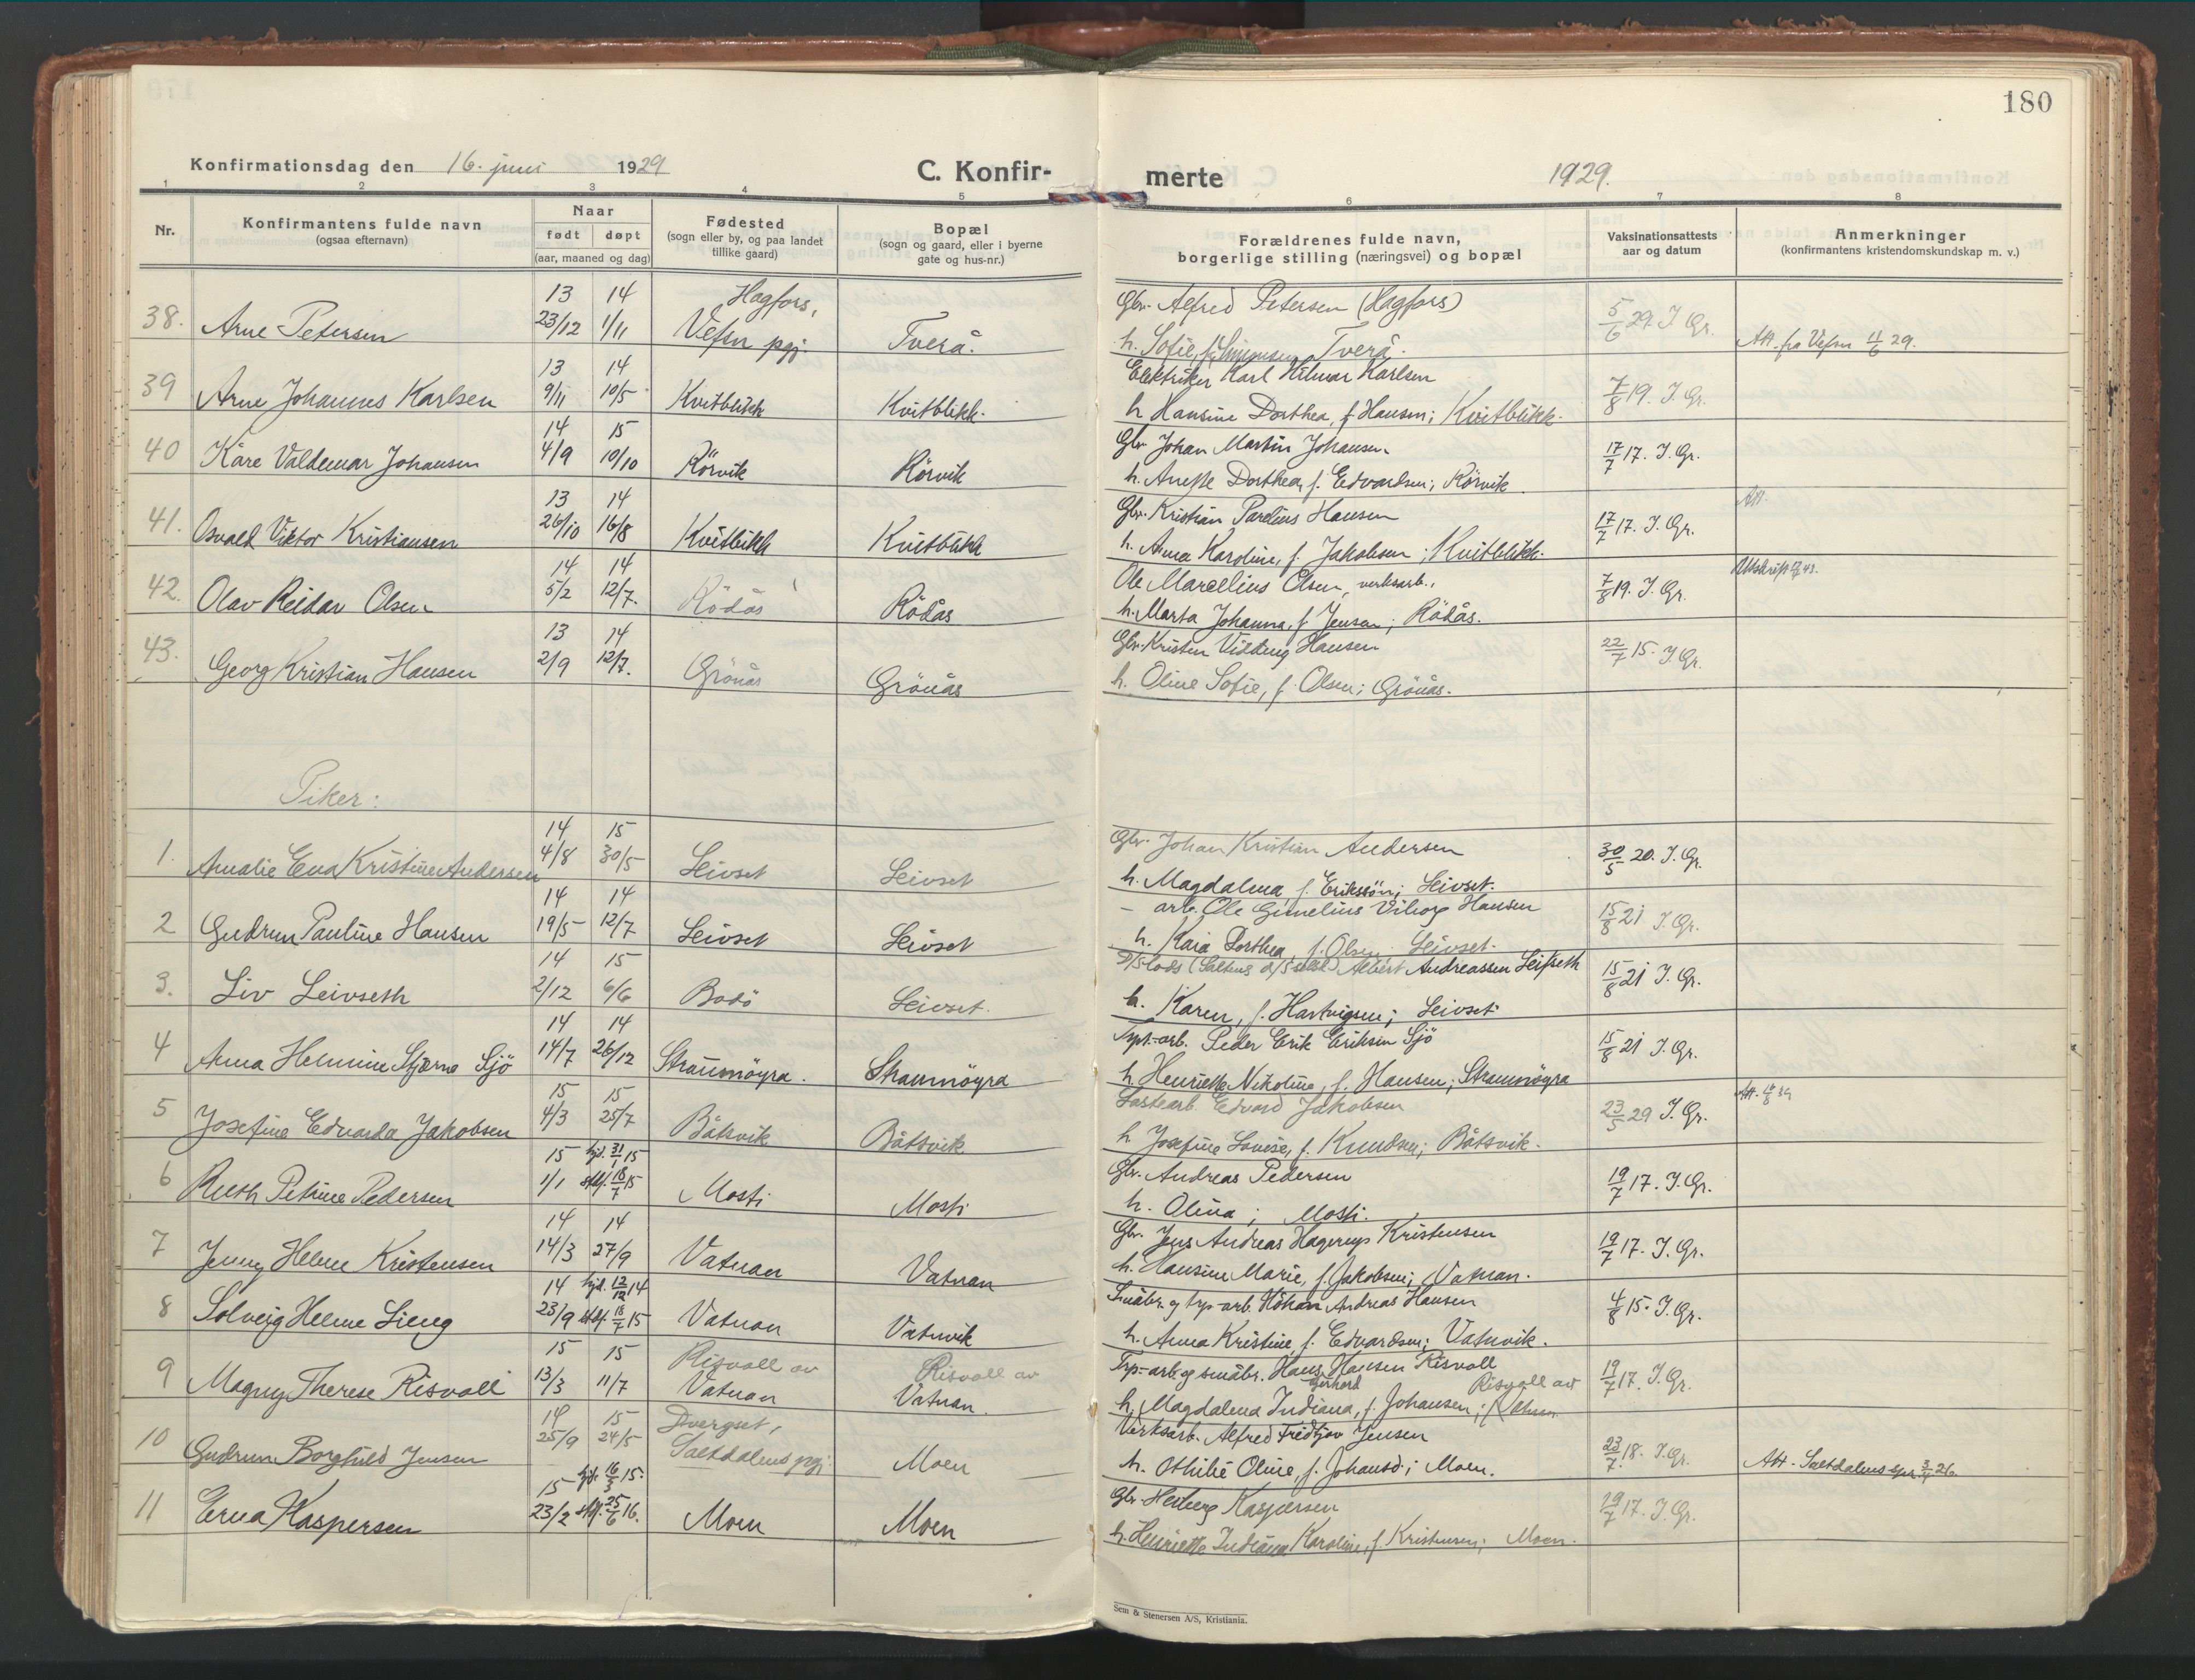 180
Konfirmationsdag den 16. juni 1929 C. Konfir- merte 1929.
1 2 3 4 5 6 7 8
Nr.
Konfirmantens fulde navn
(ogsaa efternavn)
Naar
født døpt
(aar, maaned og dag)
Fødested
(sogn eller by, og paa landet
tillike gaard)
Bopæl
(sogn og gaard, eller i byerne
gate og hus-nr.)
Forældrenes fulde navn,
borgerlige stilling (næringsvei) og bopæl
Vaksinationsattests
aar og datum
Anmerkninger
(konfirmantens kristendomskundskap m. v.)
13 14 Hagfors, Gbr. Alfred Petersen (Hagfors)
38. Arne Petersen 23/12 1/11 Vefsn pgj. Tverå. h. Sofie, Tverå. 5/6 29. J. Gr. Att. fra Vefsn 11/6 29.
13 14 Elektriker Karl Hilmar Karlsen
39 Arne Johannes Karlsen 9/11 10/5 Kvitblikk Kvitblikk. h. Hansine Dorthea, f. Hansen; Kvitblikk. 7/8 19. J. Gr.
14 15 Gbr. Johan Martin Johansen
40 Kåre Valdemar Johansen 4/9 10/10 Rörvik Rörvik h. Anette Dorthea, f. Edvardsen; Rörvik. 17/7 17. J. Gr.
13 14 Gbr. Kristian Parelius Hansen Att.
41. Osvald Viktor Kristiansen 26/10 16/8 Kvitblikk Kvitblikk h. Anna Karoline, f. Jakobsen; Kvitblikk. 17/7 17. J. Gr.
14 14 Ole Marcellius Olsen, verksarb.,
42. Olav Reidar Olsen 5/2 12/7. Rödås Rödås h. Marta Johanna, f. Jensen; Rödås. 7/8 19. J. Gr.
13 14 Gbr. Kristen Vilding Hansen
43. Georg Kristian Hansen 2/9 12/7. Grönås Grönås h. Oline Sofie, f. Olsen; Grönås. 22/7 15. J. Gr.
Piker:
14 15 Gbr. Johan Kristian Andersen
1. Amalie Eva Kristine Andersen 4/8 30/5 Leivset Leivset h. Magdalena, f. Eriksön; Leivset. 30/5 20. J. Gr.
14 14 arb. Ole Hansen
2 Gudrun Pauline Hansen 19/5 12/7 Leivset Leivset h. Kaia Dorthea, f. Olsen Leivset. 15/8 21 J. Gr.
14 15 D/S lods Albert Andreassen Leifseth
3. Liv Leivseth 2/12 6/6 Bodö Leivset. h. Karen, f. Hartvigsen; Leivset. 15/8 21 J. Gr.
14 14 Peder Erik Eriksen Sjö
4 Anna Helmine Stjerna Sjö 14/7 26/12 Straumöyra. Straumöyra h. Henriette Nikoline, f. Hansen; Straumöyra 15/8 21 J. Gr.
15 15 Lastearb. Edvard Jakobsen
5 Josefine Edvarda Jakobsen 4/3 25/7 Båtsvik Båtsvik h. Josefine Lovise, f. Knudsen; Båtsvik. 23/5 29 J. Gr.
15 hjd. 31/1 15 Gbr. Andreas Pedersen
6 Ruth Petrine Pedersen 1/1 stdf. 18/7 15 Mosti Mosti h. Olina; Mosti. 19/7 17. J. Gr.
14 14 Gbr. Jens Andreas Hagerup Kristensen
7 Jenny Helene Kristensen 14/3 27/9 Vatnan Vatnan h. Hansine Marie, f. Jakobsen; Vatnan. 19/7 17. J. Gr.
14 hjd. 12/12 14 Småbr. og trp-arb. Håkon Andreas Hansen
8 Solveig Helene Lieng 23/9 stdf. 18/7 15 Vatnan Vatnvik h. Anna Kristine, f. Edvardsen; Vatnvik. 4/8 15. J. Gr.
15 15 Risvoll av Risvoll av Trp.-arb. og småbr. Hans Hansen Risvoll
9 Magny Therese Risvoll 13/3 11/7 Vatnan Vatnan. h. Magdalena Indiana, f. Johansen; Risvoll av 19/7 17. J. Gr.
14 15 Dverget, Verksarb. Alfred Fridtjov Jensen
10 Gudrun Borghild Jensen 25/9 24/5 Saltdalens pgj. Moen h. Othilie Oline, f. Johansd.; Moen. 23/7 18. J. Gr. Att. Saltdalens spr. 3/4 26.
15 hjd. 16/3 15. Gbr. Herberg Kaspersen
11 Erna Kaspersen 23/2 stdf. 25/6 16. Moen Moen h. Henriette Indiana Karoline, f. Kristensen; Moen. 19/7 17. J. Gr.
Sem & Stenersen A/S, Kristiania.